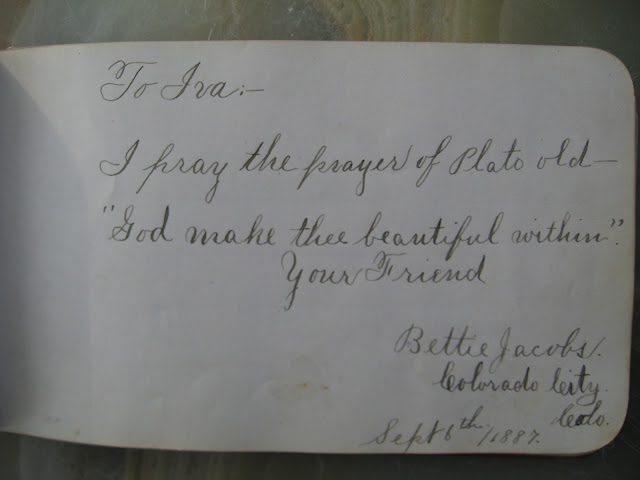 To Iva:—
I pray the prayer of Plato old—
"God make thee beautiful within".
Your Friend
Bettie Jacobs.
Colorado City.
Colo.
Sept 6th /1887.